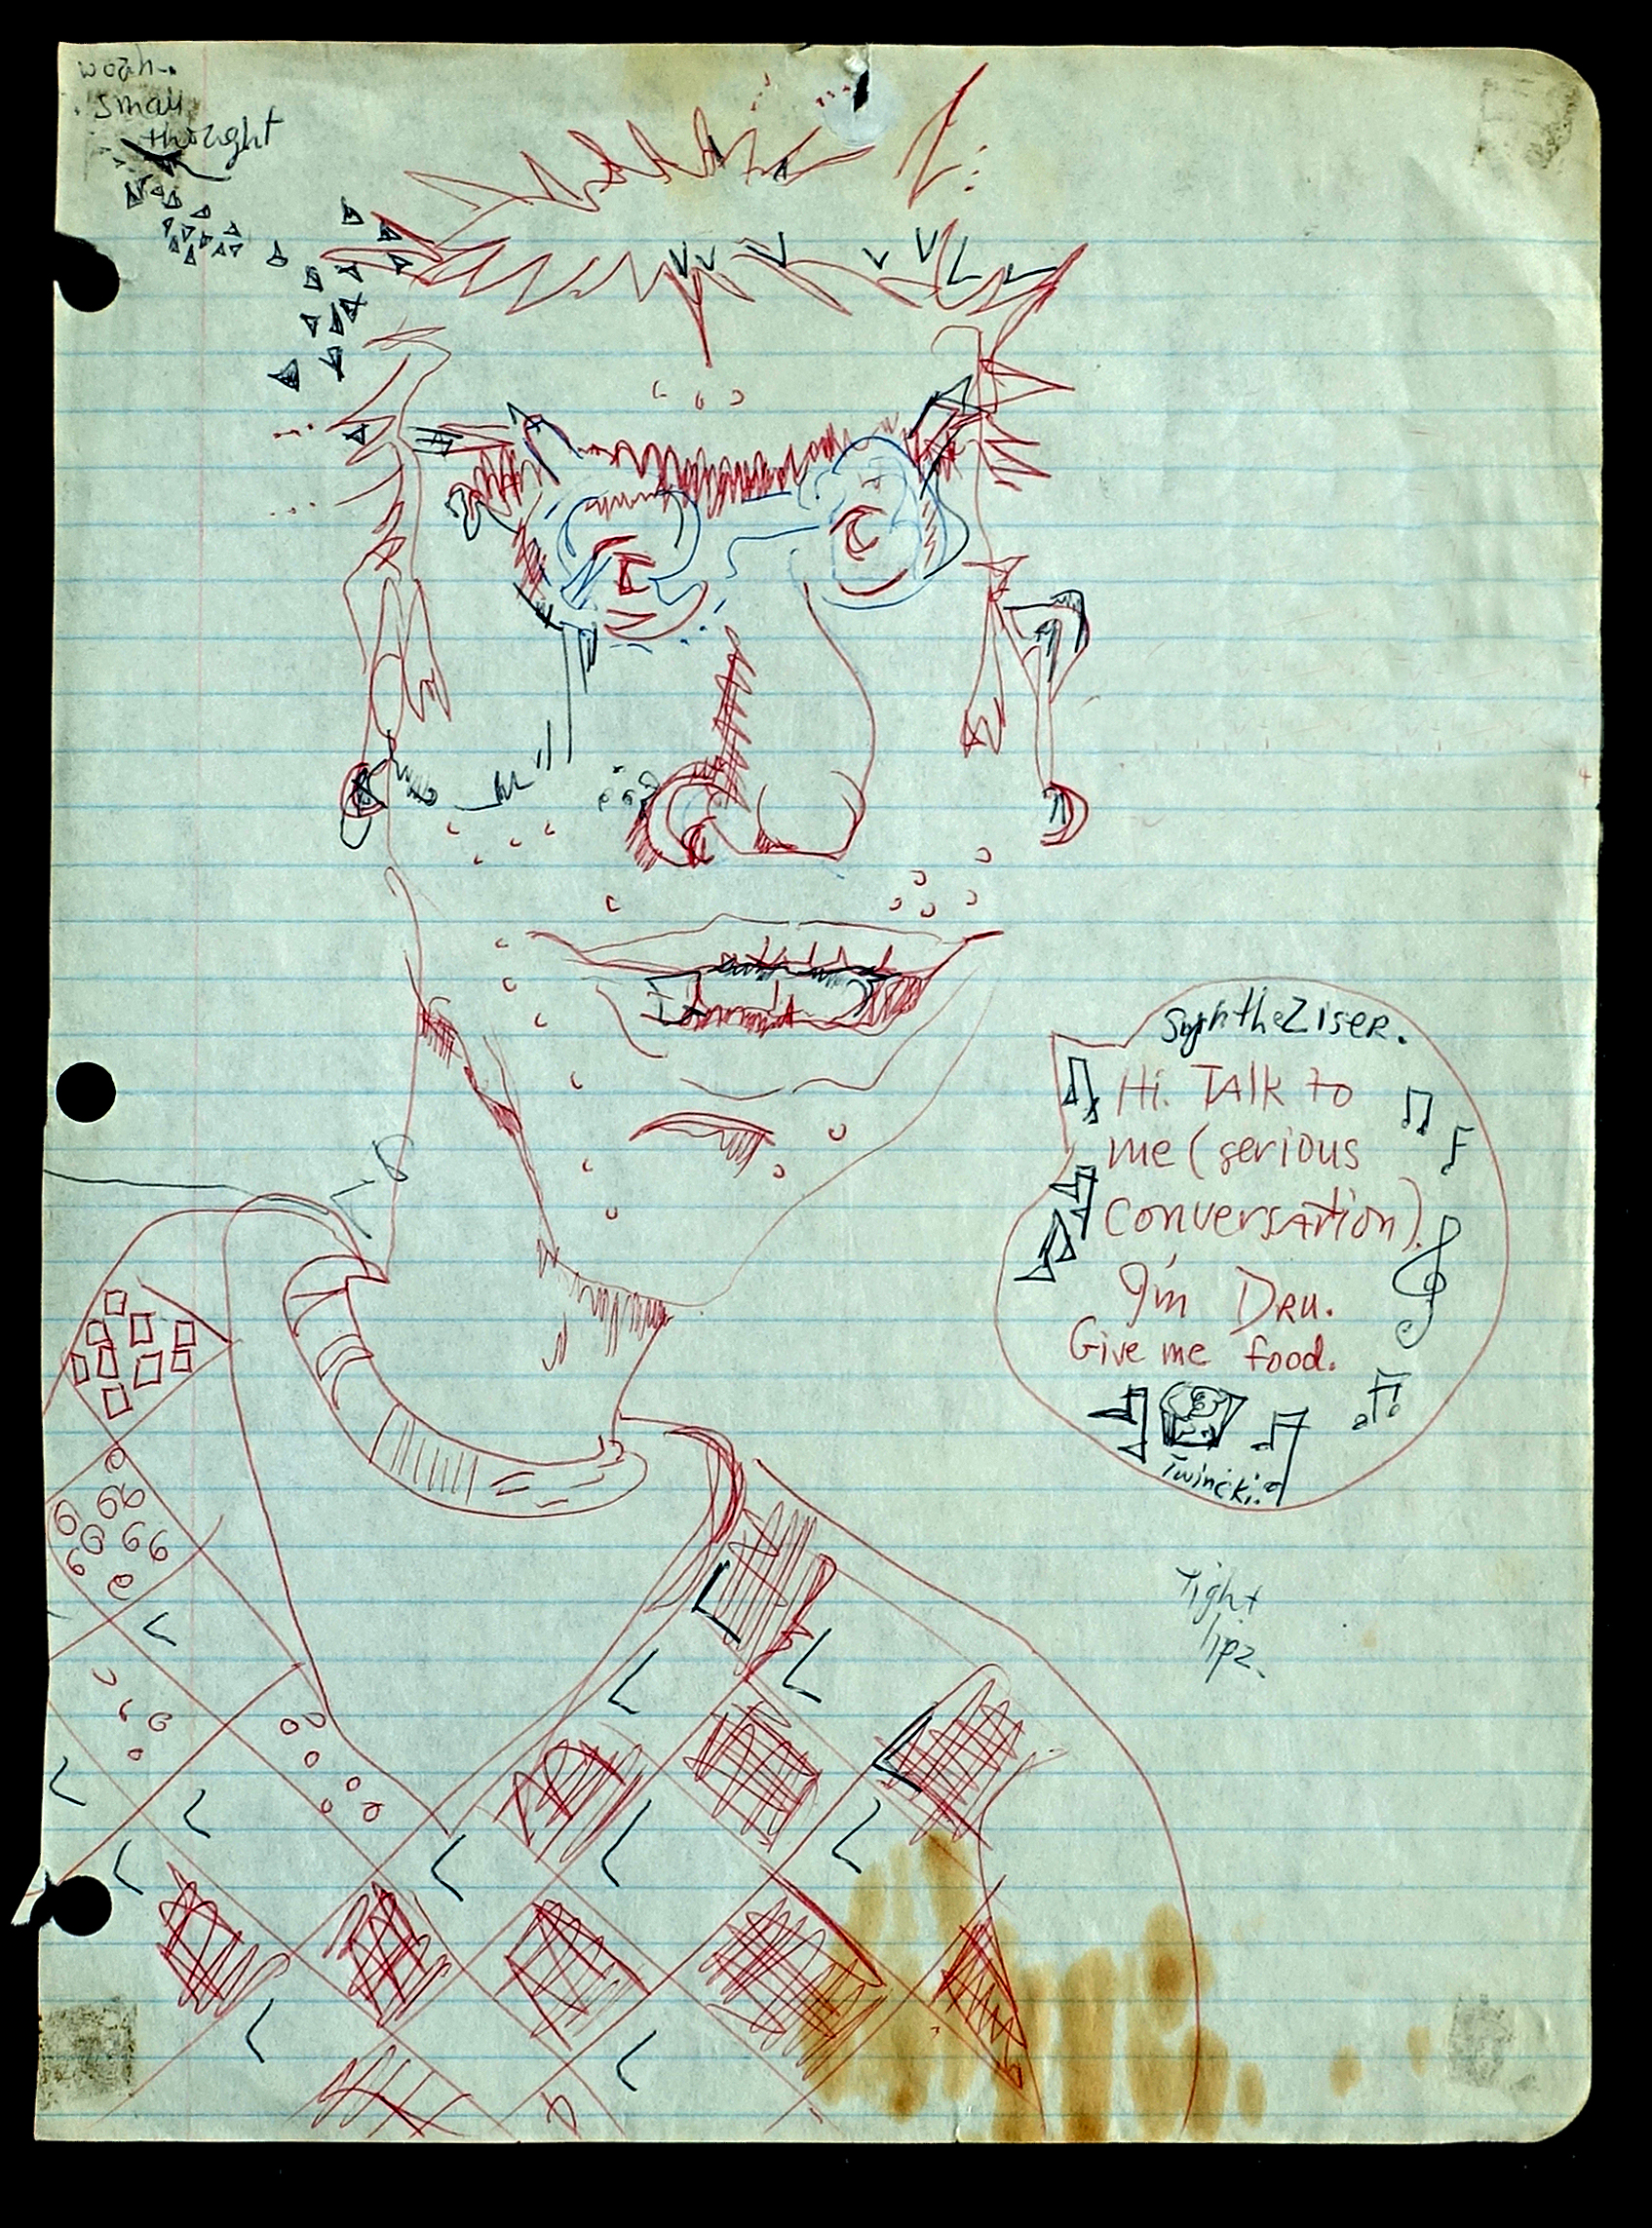 small
thought
SyntheZiser.
Hi. TAlk to
me (serious
conversAtion).
I'm DRu.
Give me food.
Twincki.
Tight
lipz.